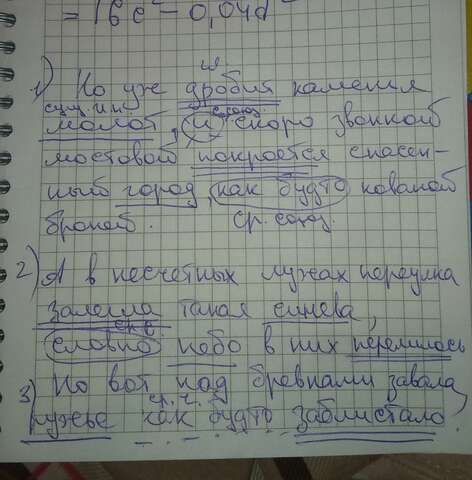 = 16c² - 0,04d
гл.
1) Но уж дробит каменья
сущ. ип союз
молот, и скоро звонкой
мостовой покроется спасен-
ный город, как будто кованой
броней. ср. союз.
2) А в несчетных лужах переулка
залегла такая синева,
ср с.
словно небо в них перелилось
3) Но вот над бревнами завала,
ср. ч.
ружье как будто заблистало.